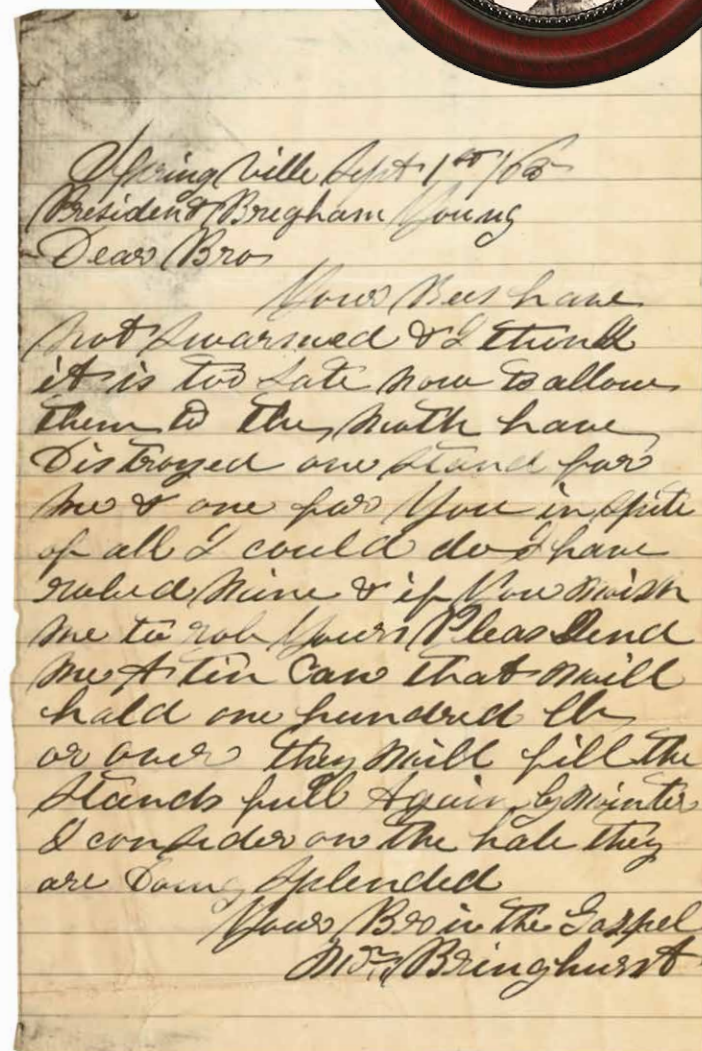 Springville Sept 1st /65
President Bregham Young
Dear Bro
Your Bees have
not swarmed & I think
it is too late now to allow
them to the moth have
Distroyed one stand for
me & one for You in spite
of all I could do I have
robed mine & if You wish
me to rob Yours Pleas Send
me A tin Can that will
hold one hundred lb
or over they will fill the
stands full Again by winter
I consider on the hole they
are Doing Splended
Your Bro in the Gospel
Wm Bringhurst